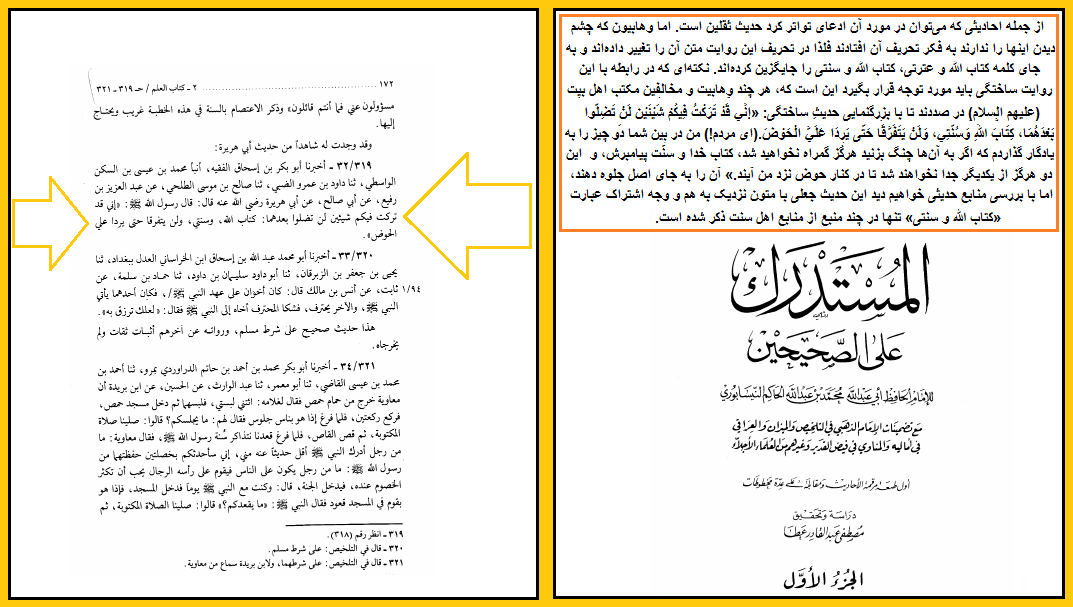 ١٧٢ ............ ٢ ـ كتاب العلم / حـ ٣١٩ ـ ٣٢١
مسؤولون عني فما أنتم قائلون» وذكر الاعتصام بالسنة في هذه الخطبة غريب ويحتاج
إليها.
وقد وجدت له شاهداً من حديث أبي هريرة:
٣٢/٣١٩ ـ أخبرنا أبو بكر بن إسحاق الفقيه، أنبأ محمد بن عيسى بن السكن
الواسطي، ثنا داود بن عمرو الضبي، ثنا صالح بن موسى الطلحي، عن عبد العزيز بن
رفيع، عن أبي صالح، عن أبي هريرة رضي الله عنه قال: قال رسول الله ﷺ: «إني قد
تركت فيكم شيئين لن تضلوا بعدهما: كتاب الله، وسنتي، ولن يتفرقا حتى يردا علي
الحوض».
٣٣/٣٢٠ ـ أخبرنا أبو محمد عبد الله بن إسحاق ابن الخراساني العدل ببغداد، ثنا
يحيى بن جعفر بن الزبرقان، ثنا أبو داود سليمان بن داود، ثنا حماد بن سلمة، عن
١/٩٤ ثابت، عن أنس بن مالك قال: كان أخوان على عهد النبي ﷺ/، فكان أحدهما يأتي
النبي ﷺ، والآخر يحترف، فشكا المحترف أخاه إلى النبي ﷺ فقال: «لعلك ترزق به».
هذا حديث صحيح على شرط مسلم، ورواته عن آخرهم أثبات ثقات ولم
يخرجاه.
٣٤/٣٢١ ـ أخبرنا أبو بكر محمد بن أحمد بن حاتم الدراوردي بمرو، ثنا أحمد بن
محمد بن عيسى القاضي، ثنا أبو معمر، ثنا عبد الوارث، عن الحسين، عن ابن بريدة أن
معاوية خرج من حمام حمص فقال لغلامه: ائتني لبستي، فلبسهما ثم دخل مسجد حمص،
فركع ركعتين، فلما فرغ إذا هو بناس جلوس فقال لهم: ما يجلسكم؟ قالوا: صلينا صلاة
المكتوبة، ثم قص القاص، فلما فرغ قعدنا نتذاكر سُنة رسول الله ﷺ، فقال معاوية: ما
من رجل أدرك النبي ﷺ أقل حديثاً عنه مني، إني سأحدثكم بخصلتين حفظتهما من
رسول الله ﷺ: ما من رجل يكون على الناس فيقوم على رأسه الرجال يحب أن تكثر
الخصوم عنده، فيدخل الجنة، قال: وكنت مع النبي ﷺ يوماً فدخل المسجد، فإذا هو
بقوم في المسجد قعود فقال النبي ﷺ: «ما يقعدكم؟» قالوا: صلينا الصلاة المكتوبة، ثم
٣١٩ ـ انظر رقم (٣١٨).
٣٢٠ ـ قال في التلخيص: على شرط مسلم.
٣٢١ ـ قال في التلخيص: على شرطهما، ولابن بريدة سماع من معاوية.
از جمله احادیثی که می‌توان در مورد آن ادعای تواتر کرد حدیث ثقلین است. اما وهابیون که چشم
دیدن اینها را ندارند به فکر تحریف آن افتادند فلذا در تحریف این روایت متن آن را تغییر داده‌اند و به
جای کلمه کتاب الله و عترتی، کتاب الله و سنتی را جایگزین کرده‌اند. نکته‌ای که در رابطه با این
روایت ساختگی باید مورد توجه قرار بگیرد این است که، هر چند وهابیت و مخالفین مکتب اهل بیت
(علیهم السلام) در صددند تا با بزرگنمایی حدیثِ ساختگی: «إِنِّي قَدْ تَرَكْتُ فِيكُمْ شَيْئَيْنِ لَنْ تَضِلُّوا
بَعْدَهُمَا، كِتَابَ اللهِ وَسُنَّتِي، وَلَنْ يَتَفَرَّقَا حَتَّى يَرِدَا عَلَيَّ الْحَوْضَ.(ای مردم!) من در بین شما دو چیز را به
یادگار گذاردم که اگر به آن‌ها چنگ بزنید هرگز گمراه نخواهید شد، کتاب خدا و سنّت پیامبرش، و این
دو هرگز از یکدیگر جدا نخواهند شد تا در کنار حوض نزد من آیند.» آن را به جای اصل جلوه دهند،
اما با بررسی منابع حدیثی خواهیم دید این حدیث جعلی با متون نزدیک به هم و وجه اشتراک عبارت
«کتاب الله و سنتی» تنها در چند منبع از منابع اهل سنت ذکر شده است.
المستدرك
على الصحيحين
للإمام الحافظ أبي عبد الله محمد بن عبد الله الحاكم النيسابوري
مع تضمينات الإمام الذهبي في التلخيص والميزان والعراقي
في أماليه والمناوي في فيض القدير وغيرهم من العلماء الأجلاء
أول طبعة مرقمة الأحاديث ومقابلة على عدة مخطوطات
دراسة وتحقيق
مصطفى عبد القادر عطا
الجزء الأول